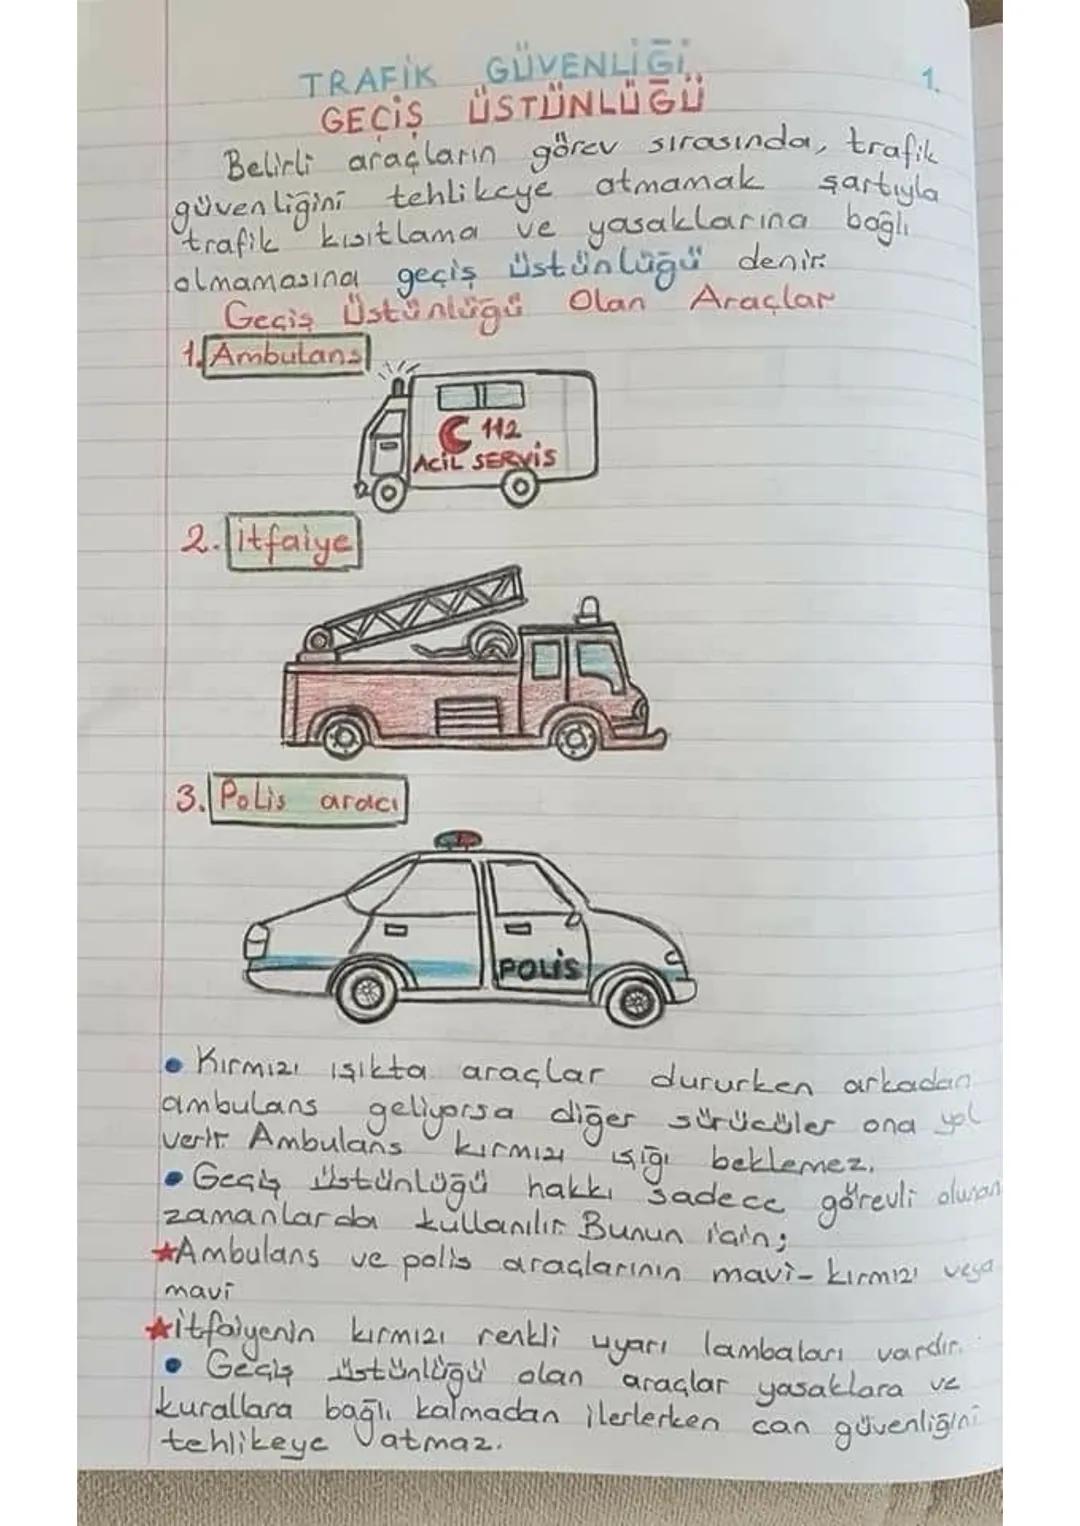 TRAFİK GÜVENLİĞİ
1.
GEÇİŞ ÜSTÜNLÜĞÜ
Belirli araçların görev sırasında, trafik
güvenliğini tehlikeye atmamak şartıyla
trafik kısıtlama ve yasaklarına bağlı
olmamasına geçiş üstünlüğü denir.
Geçiş Üstünlüğü Olan Araçlar
1. Ambulans
112
ACİL SERVİS
2. İtfaiye
3. Polis aracı
POLİS
• Kırmızı ışıkta araçlar dururken arkadan
ambulans geliyorsa diğer sürücüler ona yol
verir. Ambulans kırmızı ışığı beklemez.
• Geçiş üstünlüğü hakkı sadece görevli olunan
zamanlarda kullanılır. Bunun için;
★Ambulans ve polis araçlarının mavi-kırmızı veya
mavi
★İtfaiyenin kırmızı renkli uyarı lambaları vardır.
• Geçiş üstünlüğü olan araçlar yasaklara ve
kurallara bağlı kalmadan ilerlerken can güvenliğini
tehlikeye atmaz.